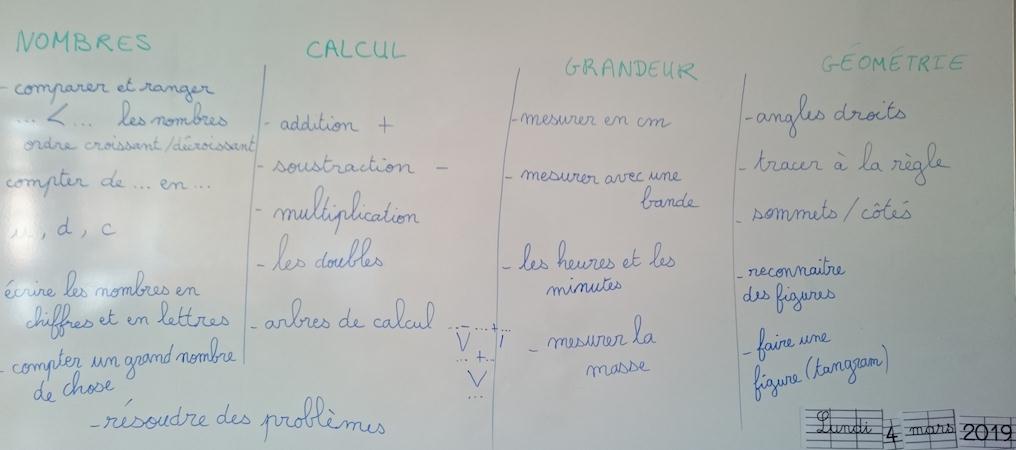 NOMBRES
- comparer et ranger
... < ... les nombres
ordre croissant/décroissant
compter de ... en ...
u, d, c
écrire les nombres en
chiffres et en lettres
- compter un grand nombre
de chose
- résoudre des problèmes
CALCUL
- addition +
- soustraction -
- multiplication
- les doubles
- arbres de calcul
... - ... + ...
... + ...
...
GRANDEUR
- mesurer en cm
- mesurer avec une
bande
- les heures et les
minutes
- mesurer la
masse
GÉOMÉTRIE
- angles droits
- tracer à la règle
- sommets / côtés
- reconnaitre
des figures
- faire une
figure (tangram)
Lundi 4 mars 2019